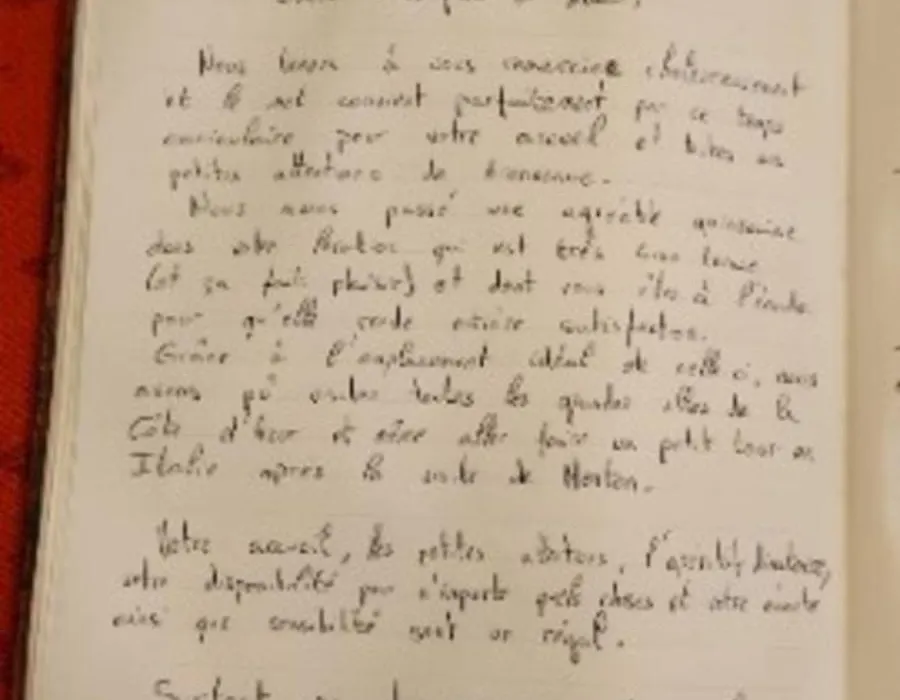 Nous tenons à vous remercier chaleureusement
et le mot convient parfaitement par ce temps
caniculaire pour votre accueil et toutes ces
petites attentions de bienvenue.
Nous avons passé une agréable quinzaine
dans votre location qui est très bien tenue
(et ça fait plaisir) et dont vous êtes à l'écoute
pour qu'elle rende entière satisfaction.
Grâce à l'emplacement idéal de celle ci, nous
avons pû visiter toutes les grandes villes de la
Côte d'Azur et même aller faire un petit tour en
Italie après la visite de Menton.
Votre accueil, les petites attentions, l'apéritif
votre disponibilité pour n'importe quels choses et votre écoute
ainsi que sensibilité sont un régal.